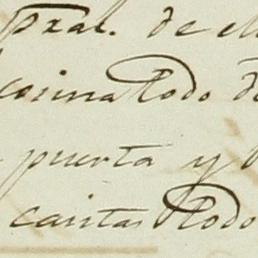 pral. de el
cosina todo de
puerta y
cantas todo